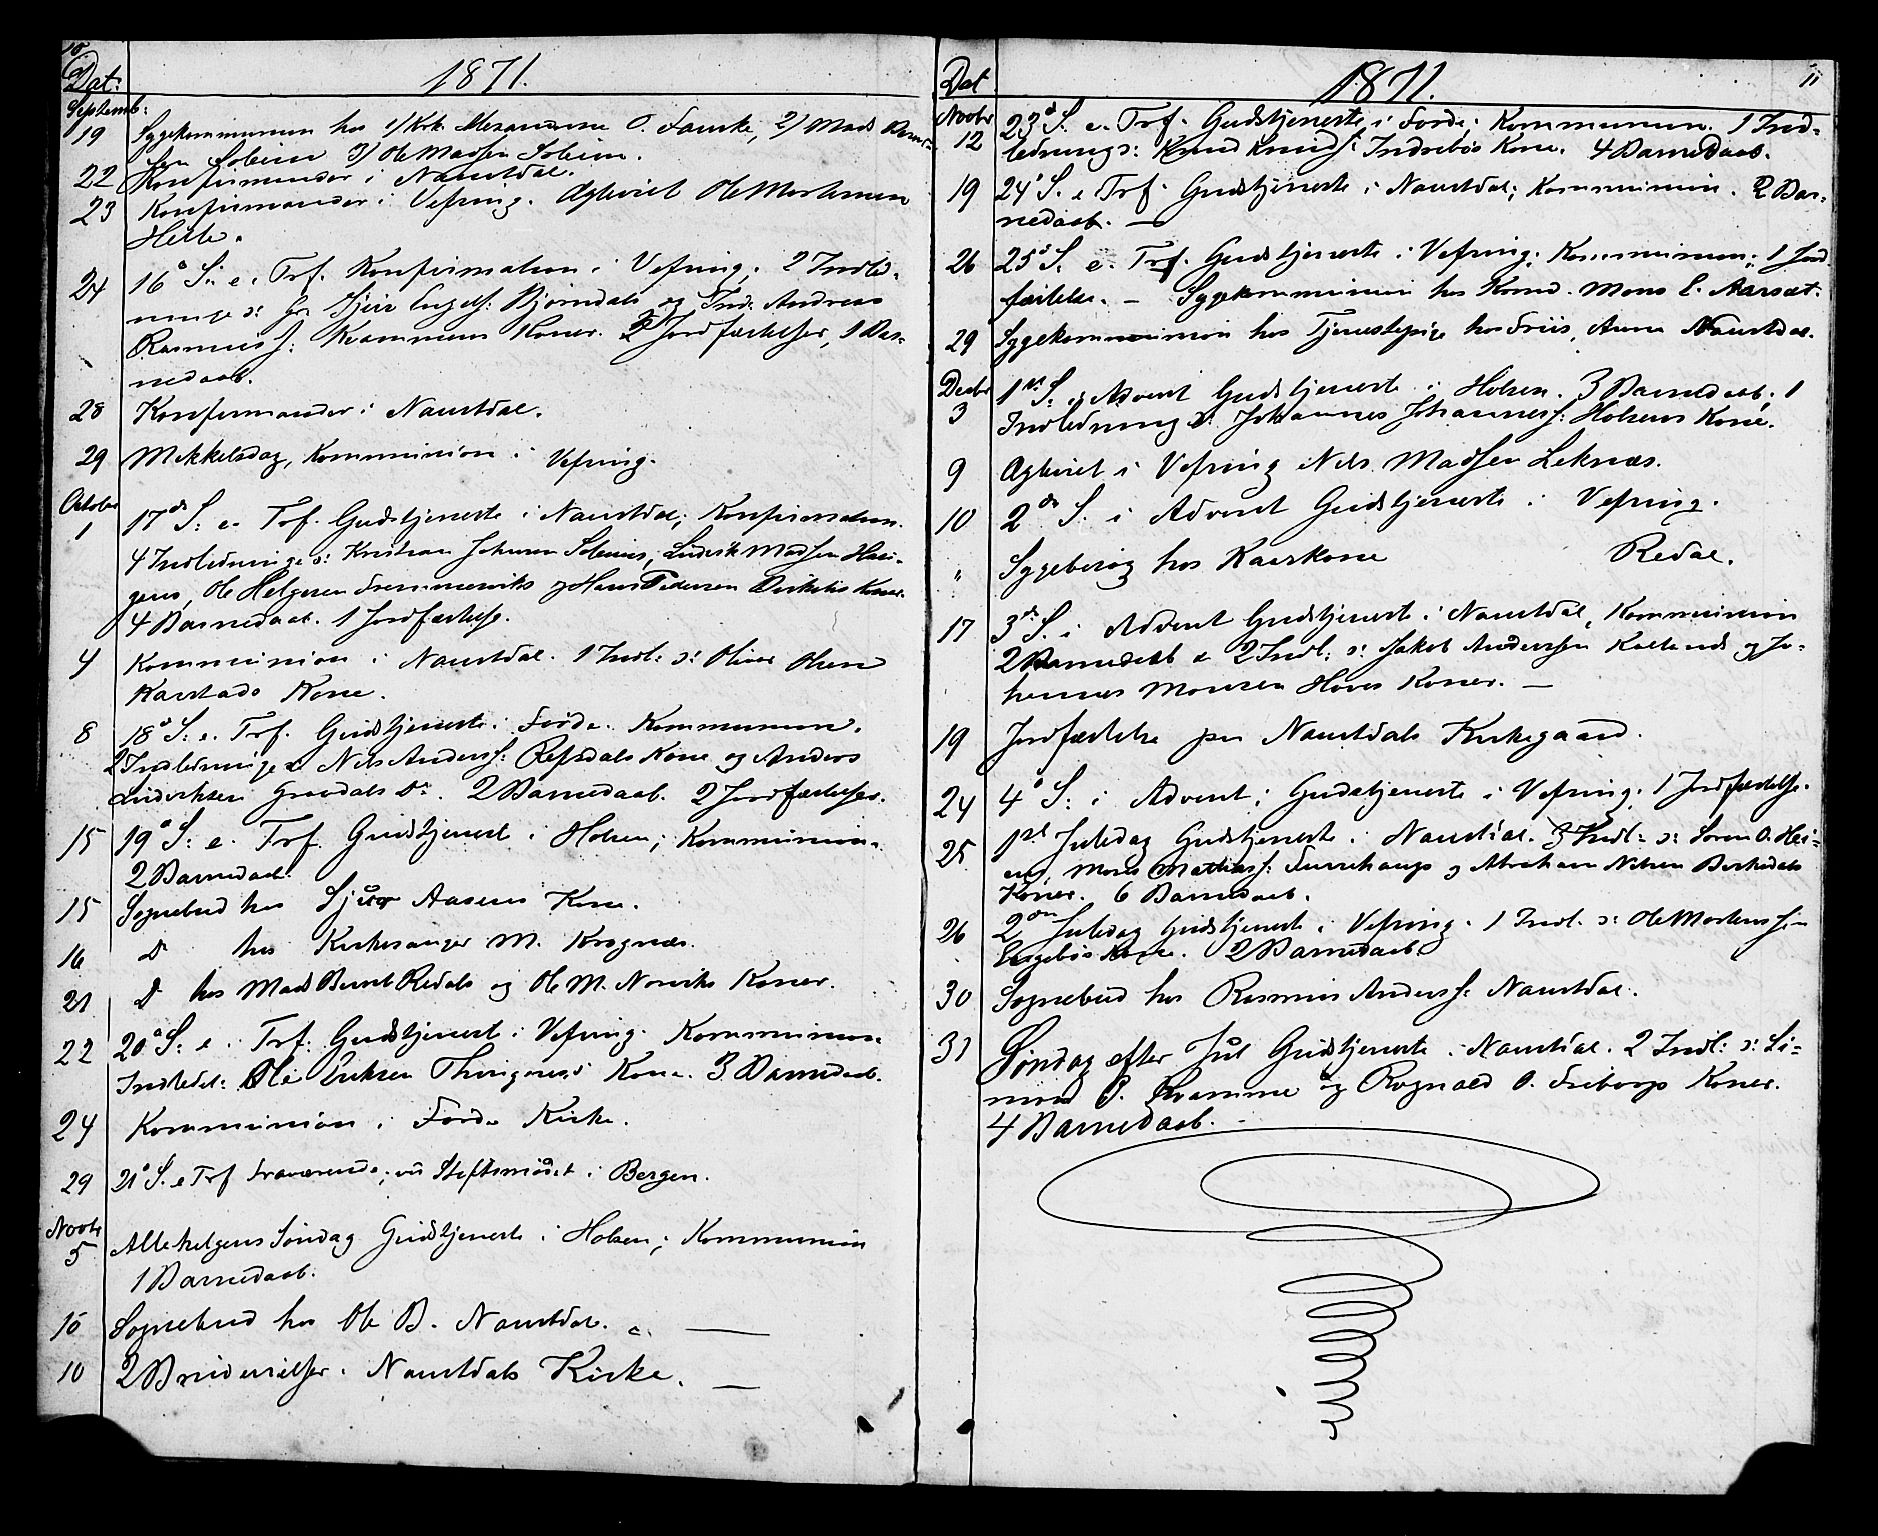 10
Dat: 1871.
Septemb:
19 Sygekommunion hos 1) Kirk. O. 2) Mads
sen Solheim 3) Ole Madsen Solheim.
22 Konfirmander i Naustdal.
23 Konfirmander i Vefring. Ægteviet Ole Mortensen
Helle.
24 16de S: e. Trf. Konfirmation i Vefring. 2 Indled-
ninge Bjørndals og Andreas
Rasmuss: Kvammens Koner. 2 Jordfæstelser, 1 Bar-
nedaab.
28 Konfirmander i Naustdal.
29 Mikkelsdag, Kommunion i Vefring.
October
1 17de S: e. Trf. Gudstjeneste i Naustdal; Konfirmation.
4 Indledninge ɔ: Kristian Johnsen Ludvik Madsen
Ole Helgesen og Hans Pedersen Koner.
4 Barnedaab. 1 Jordfæstelse.
4 Kommunion i Naustdal. 1 Indl: ɔ: Oliver Olsen
Karstads Kone.
8 18de S: e. Trf. Gudstjeneste i Førde. Kommunion.
2 Indledninge ɔ: Nils Anderss: Refsdals Kone og Anders
Do. 2 Barnedaab. 2 Jordfæstelser.
15 19de S: e. Trf. Gudstjeneste i Holsen; Kommunion.
2 Barnedaab.
15 Sognebud hos Sjur Aasens Kone.
16 Do hos Kirkesanger M. Krognæs.
21 Do hos Mads Redals og Ole M. Koner.
22 20de S: e. Trf. Gudstjeneste i Vefring. Kommunion.
Indledet: Ole Eriksen Kone. 3 Barnedaab.
24 Kommunion i Førde Kirke.
29 21de S. e Trf fraværende; ved Stiftsmødet i Bergen.
Novbr
5 Allehelgens Søndag Gudstjeneste i Holsen; Kommunion
1 Barnedaab.
10 Sognebud hos Ole B. Naustdal.
10 2 Brudevielser i Naustdals Kirke.
11
Dat 1871.
Novbr
12 23de S. e. Trf. Gudstjeneste i Førde; Kommunion. 1 Ind-
lednings: Knud Knuds: Indrebøs Kone. 4 Barnedaab.
19 24de S. e Trf. Gudstjeneste i Naustdal; Kommunion. 2 Bar-
nedaab.
26 25de S. e. Trf. Gudstjeneste i Vefring; Kommunion; 1 Jord-
fæstelse. – Sygekommunion hos Mons E. Aarsæt.
29 Sygekommunion hos Tjenestepige hos Friis, Anna Naustdal.
Decbr
3 1ste S. i Advent Gudstjeneste i Holsen. 3 Barnedaab; 1
Indledning ɔ: Johannes Johanness: Holsens Kone.
9 Ægteviet i Vefring Nils Madsen Leknæs.
10 2den S. i Advent Gudstjeneste i Vefring.
" Sygebesøg hos Redal.
17 3die S. i Advent Gudstjeneste i Naustdal, Kommunion
2 Barnedaab & 2 Indl: ɔ: Jakob Anderssen og Jo-
hannes Monsen Hoves Koner. –
19 Jordfæstelse paa Naustdals Kirkegaard.
24 4de S: i Advent; Gudstjeneste i Vefring; 1 Jordfæstelse.
25 1ste Juledag Gudstjeneste i Naustdal. 3 Indl: ɔ: Søren O. Hei-
Mons Mathiass: Furehaugs og Abraham Nilsen Birkedals
Koner. 6 Barnedaab.
26 2den Juledag Gudstjeneste i Vefring. 1 Indl. ɔ: Ole Mortenssen
Engebøs Kone. 2 Barnedaab.
30 Sognebud hos Rasmus Anderss: Naustdal.
31 Søndag efter Jul Gudstjeneste i Naustdal. 2 Indl: ɔ: Si-
mon P. Kvamme og Rognald O. Frøborgs Koner.
4 Barnedaab.